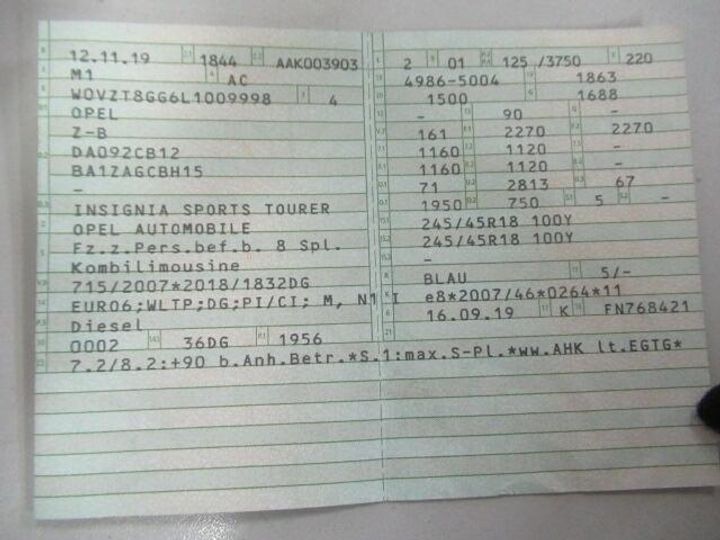 12.11.19 1844 AAK003903
M1 AC
W0VZT8GG6L1009998 4
OPEL
Z-B
DA092CB12
BA1ZAGCBH15
–
INSIGNIA SPORTS TOURER
OPEL AUTOMOBILE
Fz.z.Pers.bef.b. 8 Spl.
Kombilimousine
715/2007*2018/1832DG
EURO6;WLTP;DG;PI/CI; M, N1 I
Diesel
0002 36DG 1956
7.2/8.2:+90 b.Anh.Betr.*S.1:max.S-Pl.*ww.AHK lt.EGTG*
2 01 125 /3750 220
4986-5004 1863
1500 1688
– 90 –
161 2270 2270
1160 1120 –
1160 1120 –
71 2813 67
1950 750 5 –
245/45R18 100Y
245/45R18 100Y
–
BLAU 5/-
e8*2007/46*0264*11
16.09.19 K FN768421